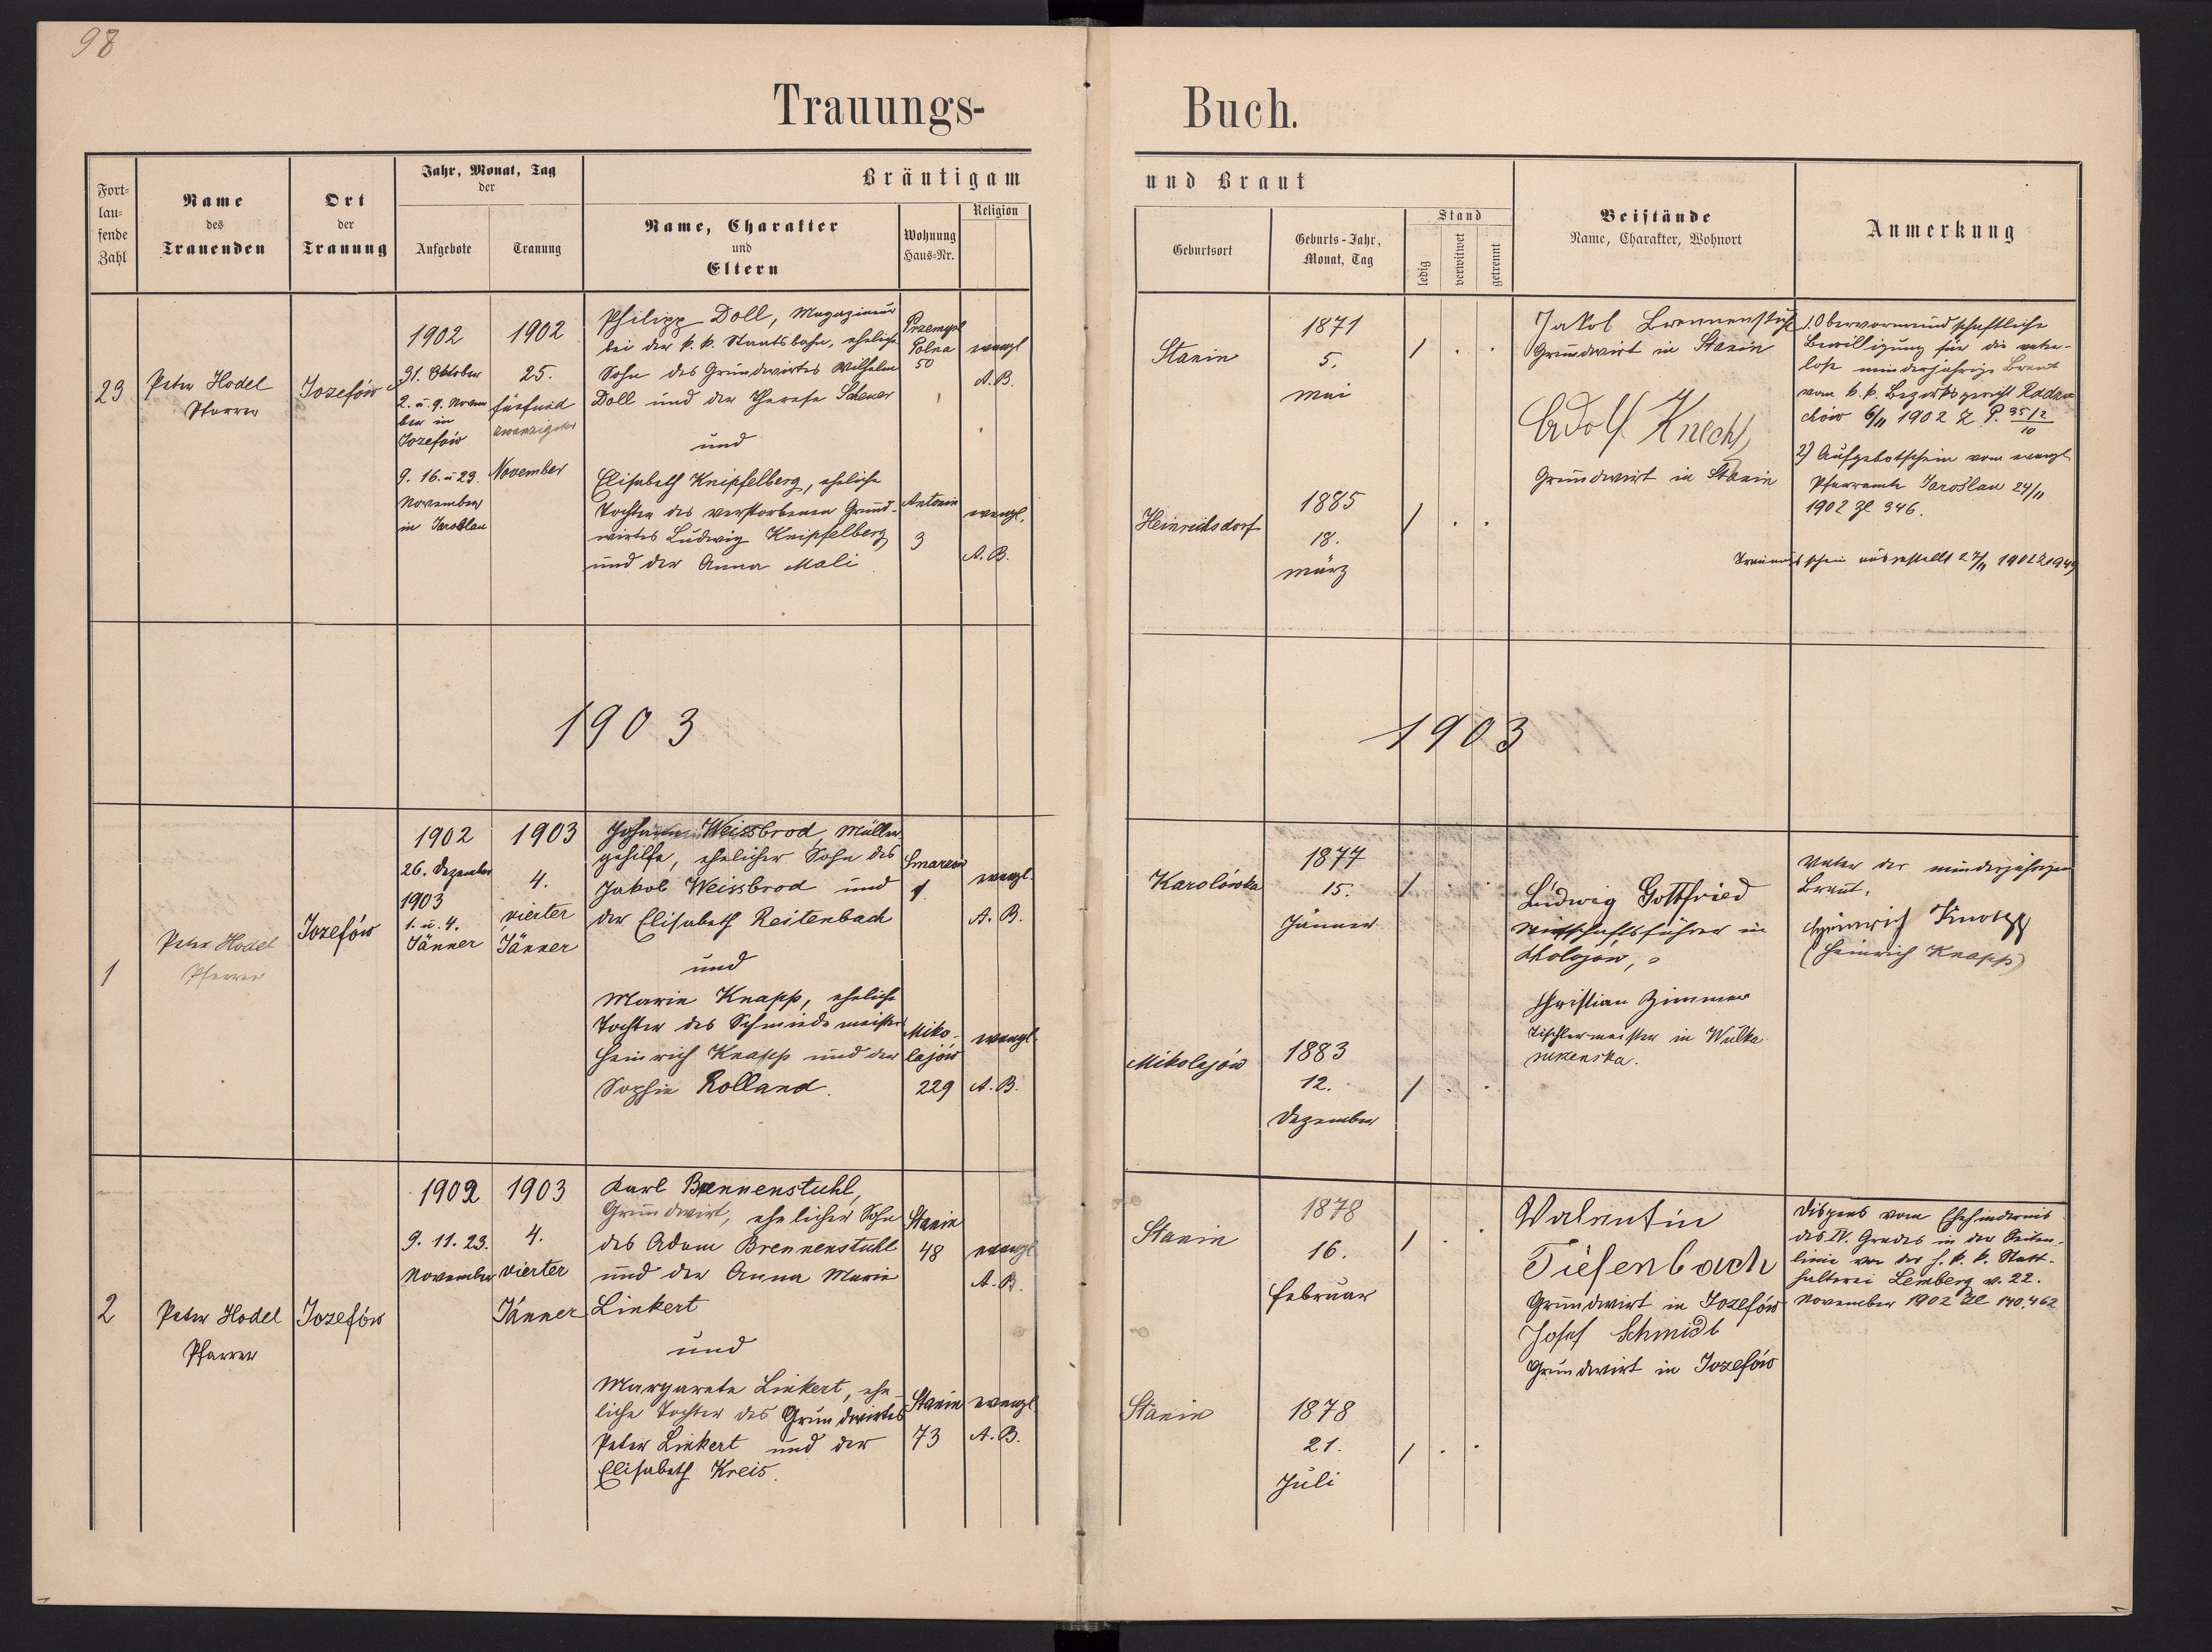 98
Trauungs-
Buch.
Fort-
lau-
fende
Zahl
Name
des
Trauenden
Ort
der
Trauung
Jahr, Monat, Tag
der
Aufgebote
Trauung
Bräutigam
Name, Charakter
und
Eltern
Wohnung
Haus-Nr.
Religion
und Braut
Geburtsort
Geburts-Jahr,
Monat, Tag
Stand
ledig
verwitwet
getrennt
Beistände
Name, Charakter, Wohnort
Anmerkung
23
Peter Hodel
Pfarrer
Jozefów
1902
31. Oktober
2. u. 9. Novem
ber in
Jozefów
9. 16. u 23.
November
in Jaroslau
1902
25.
fünfund
zwanzigster
November
Philipp Doll, Magazineur
bei der k. k. Staatsbahn, ehelicher
Sohn des Grundwirtes Wilhelm
Doll und der Therese Scheuer
und
Elisabeth Knipfelberg, eheliche
Tochter des verstorbenen Grund-
wirtes Ludwig Knipfelberg
und der Anna Mali
Przemysl
Polna
50
Antonin
3
evangl
A. B.
evangl.
A. B.
Stanin
1871
5.
Mai
Heinrichsdorf
1885
18.
März
Jakob Brennenstuhl
Grundwirt in Stanin
Adolf Knecht
Grundwirt in Stanin
1. Obervormundschaftliche
Bewilligung für die vater-
lose minderjährige Braut
vom k. k. Bezirksgericht Radzie
chów 6/11 1902 Z P. 95/2
10
2) Aufgebotschein vom evangl
Pfarramte Jaroslau 24/11
1902 Zl 346.
Trauungsschein ausgestellt 27/11 1902 Z 1949
1903
1903
1
Peter Hodel
Pfarrer
Jozefów
1902
26. Dezember
1903
1. u. 4.
Jänner
1903
4.
vierter
Jänner
Johann Weissbrod, Müller
gehilfe, ehelicher Sohn des
Jakob Weissbrod und
der Elisabeth Reitenbach
und
Marie Knapp, eheliche
Tochter des Schmiedemeisters
Heinrich Knapp und der
Sophie Rolland.
Smarzow
1.
Miko-
lajów
229
evangl.
A. B.
evangl.
A. B.
Karolówka
1877
15.
Jänner
Mikolajów
1883
12.
Dezember
Ludwig Gottfried
Wirtschaftsführer in
Cholojów,
Christian Zimmer
Tischlermeister in Wulka
suszenska.
Vater der minderjährigen
Braut.
Heinrich Knapp
(Heinrich Knapp)
2
Peter Hodel
Pfarrer
Jozefów
1902
9. 11. 23.
November
1903
4.
vierter
Jänner
Karl Brennenstuhl,
Grundwirt, ehelicher Sohn
des Adam Brennenstuhl
und der Anna Marie
Linkert
und
Margareta Linkert, ehe-
liche Tochter des Grundwirtes
Peter Linkert und der
Elisabeth Kreis.
Stanin
48
Stanin
73
evangl
A. B.
evangl
A. B.
Stanin
1878
16.
Februar
Stanin
1878
21.
Juli
Valentin
Tiefenbach
Grundwirt in Jozefów
Josef Schmidt
Grundwirt in Jozefów
Dispens vom Ehehindernis
des IV. Grades in der Seiten-
linie von der h. k. k. Statt-
halterei Lemberg v. 22.
November 1902 Zl 140.462